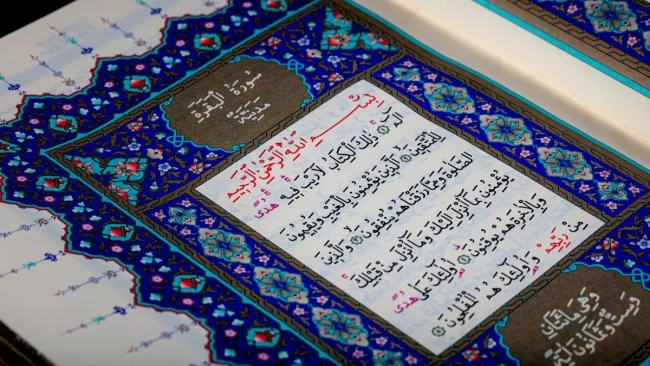 سُورَةُ الْبَقَرَةِ
مَدَنِيَّةٌ
بِسْمِ اللَّهِ الرَّحْمٰنِ الرَّحِيمِ
الٓمٓ ذٰلِكَ الْكِتَابُ لَا رَيْبَ فِيهِ هُدًى
لِلْمُتَّقِينَ الَّذِينَ يُؤْمِنُونَ بِالْغَيْبِ وَيُقِيمُونَ
الصَّلٰوةَ وَمِمَّا رَزَقْنَاهُمْ يُنْفِقُونَ وَالَّذِينَ
يُؤْمِنُونَ بِمَا أُنْزِلَ إِلَيْكَ وَمَا أُنْزِلَ مِنْ قَبْلِكَ
وَبِالْآخِرَةِ هُمْ يُوقِنُونَ أُولٰئِكَ عَلٰى هُدًى
مِنْ رَبِّهِمْ وَأُولٰئِكَ هُمُ الْمُفْلِحُونَ
وَهِيَ مِائَتَانِ
وَسِتٌّ وَثَمَانُونَ آيَةً